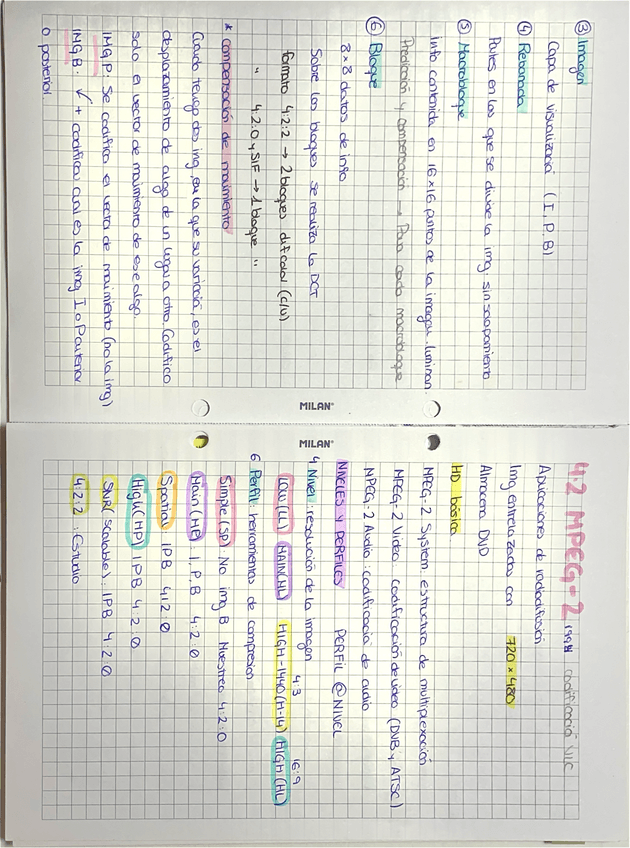 ③ Imagen
Capa de visualización (I, P, B)
④ Rebanada
Partes en las que se divide la img. sin solapamiento
⑤ Macrobloque
Info contenida en 16x16 puntos de la imagen. luminan.
Predicción y compensación → Para cada macrobloque
⑥ Bloque
8x8 datos de info
Sobre los bloques se realiza la DCT
formato 4:2:2 → 2 bloques dif color (c/u)
" 4:2:0 y SIF → 1 bloque "
* compensación de movimiento
Cuando tengo dos img. en la que su variación, es el
desplazamiento de algo de un lugar a otro. Codifico
solo el vector de movimiento de ese algo
IMG P: Se codifica el vector de movimiento (no la img)
IMG B: ↙ + codifica cual es la img I o P anterior
o posterior.
MILAN®
MILAN®
4.2 MPEG-2 1994 codificació VLC
Aplicaciones de radiodifusión
Img entrelazadas con 720 x 480
Almacena DVD
HD básica
MPEG-2 System: estructura de multiplexación
MPEG-2 Video: codificación de video (DVB y ATSC)
MPEG-2 Audio: codificación de audio
NIVELES Y PERFILES PERFIL @ NIVEL
4 Nivel: resolución de la imagen 4:3 16:9
LOW (LL) MAIN (ML) HIGH-1440 (H-14) HIGH (HL)
6 Perfil: herramientas de compresión
Simple (SP) No img B Muestreo 4:2:0
Main (MP): I, P, B 4:2:0
Spatial: IPB 4:2:0
High (HP) IPB 4:2:0
SNR (scalable): IPB 4:2:0
4:2:2: Estudio